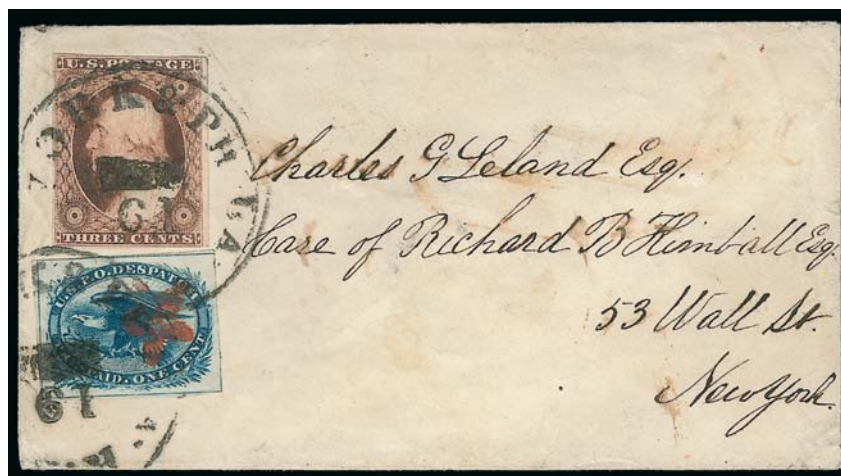 U.S. POSTAGE
YORK & PHILA
19
THREE CENTS
U.S.P.O. DESPATCH
PAID. ONE CENT
19
Charles G Leland Esq.
Care of Richard B Kimball Esq.
53 Wall St.
New York.